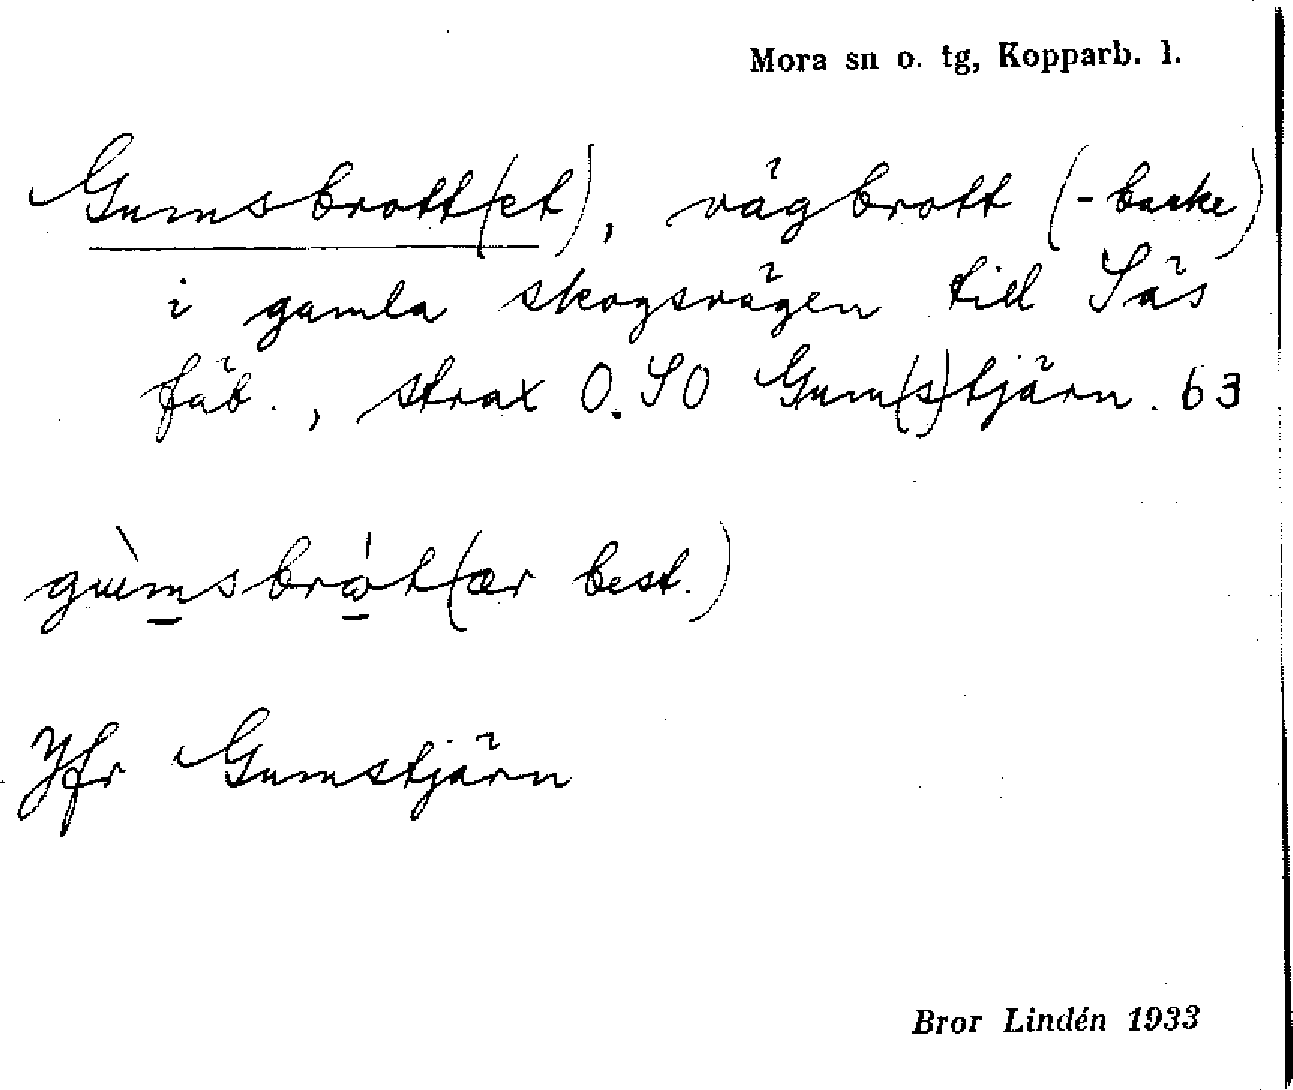 Mora sn o. tg, Kopparb. l.
Gumsbrott(et), vägbrott (-backe)
i gamla skogsvägen till Säs
fäb., strax O.SO Gum(s)tjärn. 63
gùmsbrὠt(ær best.)
Jfr Gumstjärn
Bror Lindén 1933